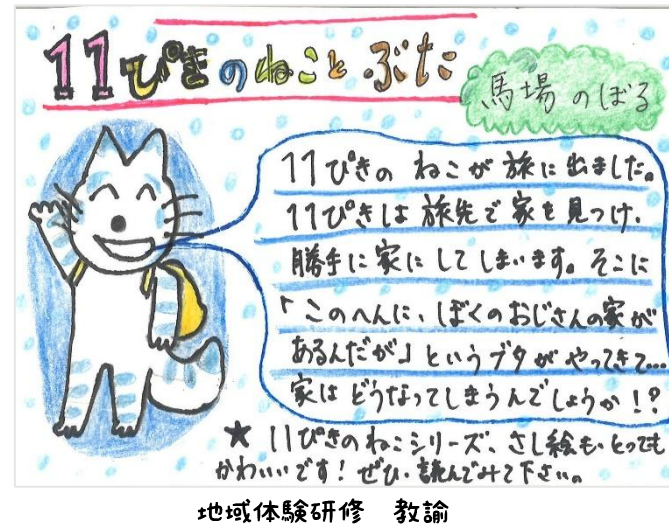 11ぴきのねことぶた
馬場のぼる
11ぴきの ねこが 旅に出ました。
11ぴきは 旅先で 家を見つけ、
勝手に家にしてしまいます。そこに
「このへんに、ぼくのおじさんの家が
あるんだが」というブタがやってきて…
家はどうなってしまうんでしょうか!?
★ 11ぴきのねこシリーズ、さし絵も、とっても
かわいいです！ ぜひ、読んでみて下さい。
地域体験研修　教諭